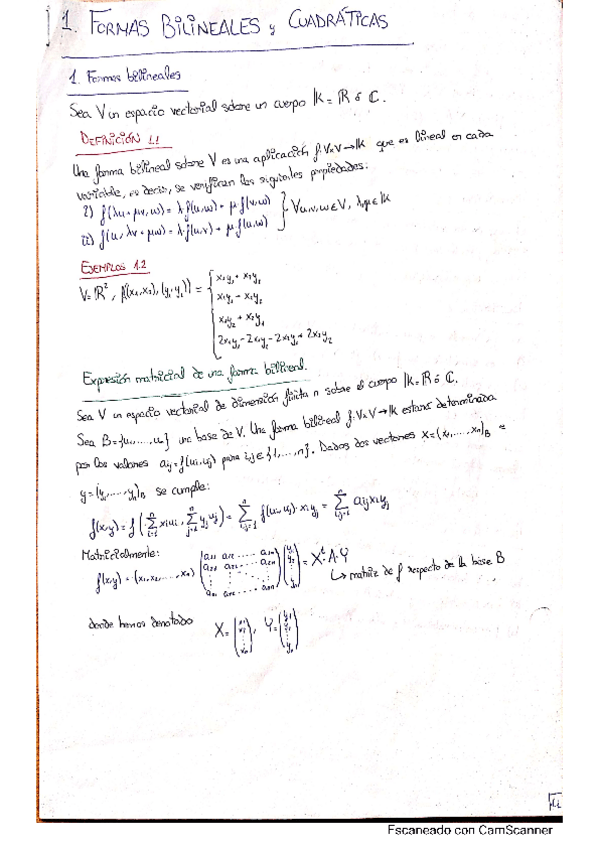 1. FORMAS BILINEALES y CUADRÁTICAS
1. Formas bilineales
Sea V un espacio vectorial sobre un cuerpo K = ℝ ó ℂ.
DEFINICIÓN 1.1
Una forma bilineal sobre V es una aplicación f: V×V → K que es lineal en cada
variable, es decir, se verifican las siguientes propiedades:
i) f(λu + μv, w) = λ f(u,w) + μ f(v,w)
ii) f(u, λv + μw) = λ·f(u,v) + μ f(u,w) } ∀u,v,w ∈ V, λ,μ ∈ K
EJEMPLOS 1.2
V = ℝ², f((x₁,x₂), (y₁,y₂)) = {
x₁y₁ + x₂y₂
x₁y₁ - x₂y₂
x₁y₂ + x₂y₁
2x₁y₁ - 2x₁y₂ - 2x₂y₁ + 2x₂y₂
Expresión matricial de una forma bilineal.
Sea V un espacio vectorial de dimensión finita n sobre el cuerpo K = ℝ ó ℂ.
Sea B = {u₁, ..., uₙ} una base de V. Una forma bilineal f: V×V → K estará determinada
por los valores aᵢⱼ = f(uᵢ,uⱼ) para i,j ∈ {1, ..., n}. Dados dos vectores x = (x₁, ..., xₙ)_B e
y = (y₁, ..., yₙ)_B se cumple:
f(x,y) = f(∑ᵢ₌₁ⁿ xᵢuᵢ, ∑ⱼ₌₁ⁿ yⱼuⱼ) = ∑ᵢ,ⱼ₌₁ⁿ f(uᵢ,uⱼ)·xᵢyⱼ = ∑ᵢ,ⱼ₌₁ⁿ aᵢⱼxᵢyⱼ
Matricialmente:
f(x,y) = (x₁, x₂, ..., xₙ) (a₁₁ a₁₂ ... a₁ₙ
a₂₁ ... a₂ₙ
aₙ₁ aₙ₂ ... aₙₙ) (y₁ y₂ ⋮ yₙ) = Xᵗ·A·Y
↳ matriz de f respecto de la base B
donde hemos denotado X = (x₁ x₂ ⋮ xₙ), Y = (y₁ y₂ ⋮ yₙ)
Escaneado con CamScanner